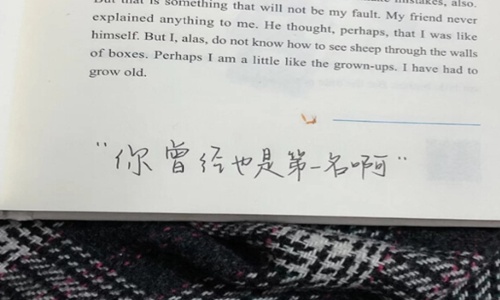 mistakes, also.
But that is something that will not be my fault. My friend never
explained anything to me. He thought, perhaps, that I was like
himself. But I, alas, do not know how to see sheep through the walls
of boxes. Perhaps I am a little like the grown-ups. I have had to
grow old.
“你曾经也是第一名啊”